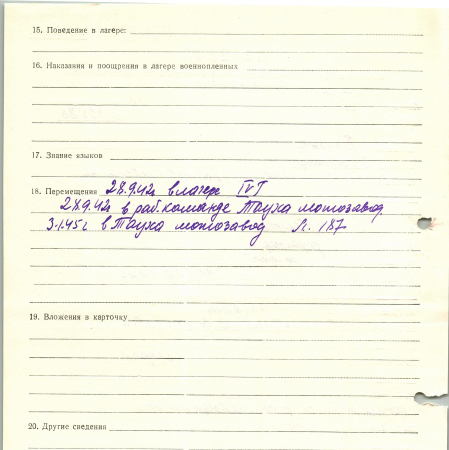 15. Поведение в лагере:
16. Наказания и поощрения в лагере военнопленных
17. Знание языков
18. Перемещения 28.9.42г в лагере IVГ
28.9.42г в раб. команде Тауха мотозавод.
3.1.45г в Тауха мотозавод Л. 187
19. Вложения в карточку
20. Другие сведения